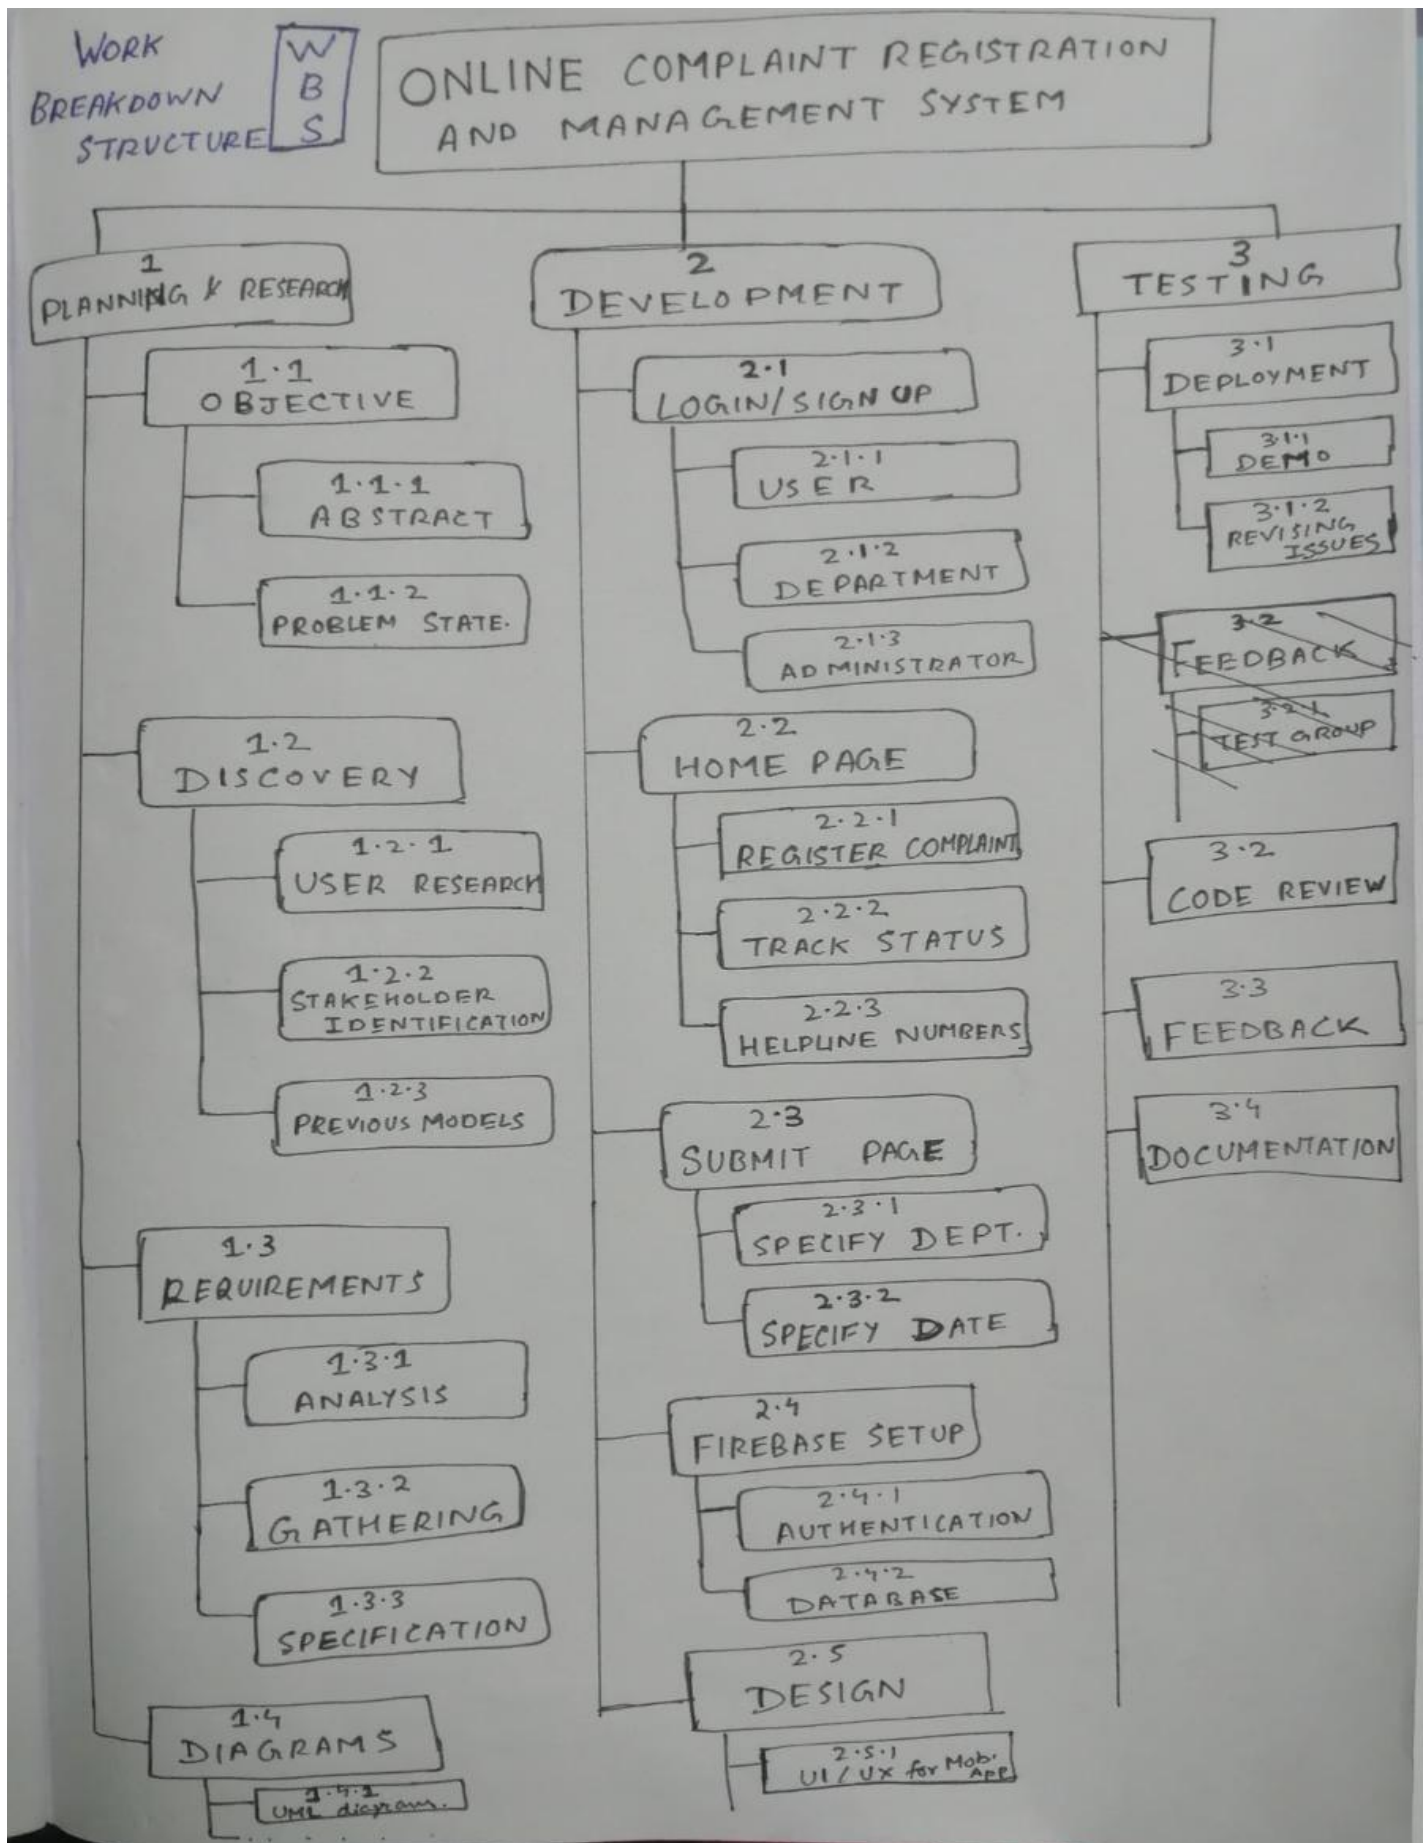 WORK
BREAKDOWN
STRUCTURE
W
B
S
ONLINE COMPLAINT REGISTRATION
AND MANAGEMENT SYSTEM
1
PLANNING & RESEARCH
1.1
OBJECTIVE
1.1.1
ABSTRACT
1.1.2
PROBLEM STATE.
1.2
DISCOVERY
1.2.1
USER RESEARCH
1.2.2
STAKEHOLDER
IDENTIFICATION
1.2.3
PREVIOUS MODELS
1.3
REQUIREMENTS
1.3.1
ANALYSIS
1.3.2
GATHERING
1.3.3
SPECIFICATION
1.4
DIAGRAMS
1.4.1
UML diagram.
2
DEVELOPMENT
2.1
LOGIN/SIGN UP
2.1.1
USER
2.1.2
DEPARTMENT
2.1.3
ADMINISTRATOR
2.2
HOME PAGE
2.2.1
REGISTER COMPLAINT
2.2.2
TRACK STATUS
2.2.3
HELPLINE NUMBERS
2.3
SUBMIT PAGE
2.3.1
SPECIFY DEPT.
2.3.2
SPECIFY DATE
2.4
FIREBASE SETUP
2.4.1
AUTHENTICATION
2.4.2
DATABASE
2.5
DESIGN
2.5.1
UI/UX for Mob.
App
3
TESTING
3.1
DEPLOYMENT
3.1.1
DEMO
3.1.2
REVISING
ISSUES
3.2
FEEDBACK
3.2.1
TEST GROUP
3.2
CODE REVIEW
3.3
FEEDBACK
3.4
DOCUMENTATION